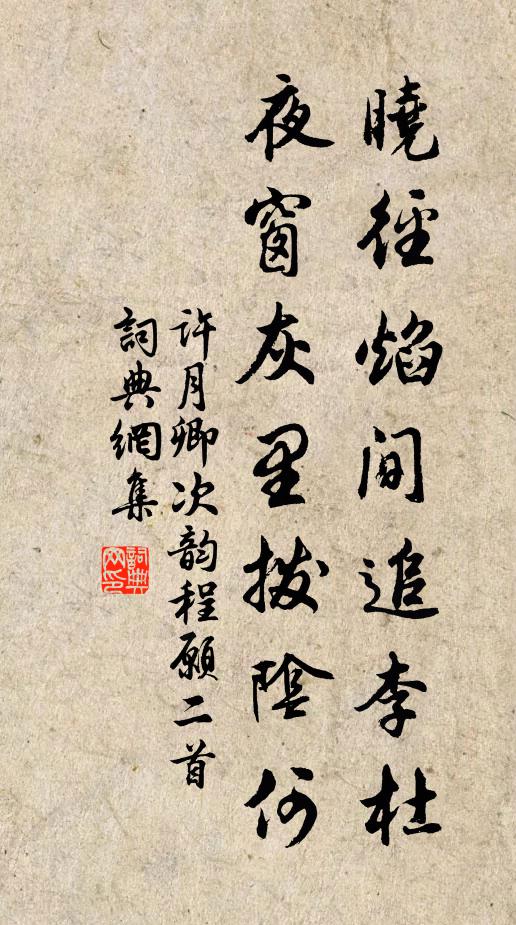 曉徑焰間追李杜
夜窗灰里撥陰何
許月卿次韵程願二首
詞典網集
詞典網印